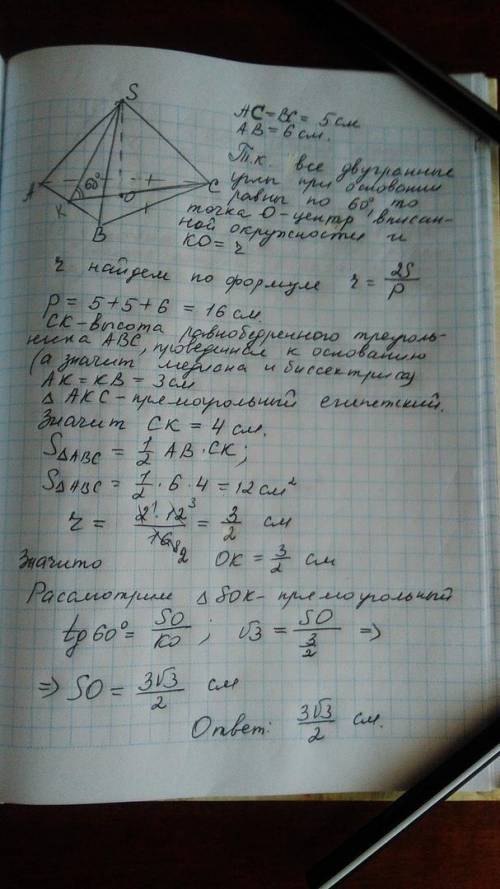 S
A
60°
C
K
O
B
AC = BC = 5 см
AB = 6 см.
Т.к. все двугранные
углы при основании
равны по 60°, то
точка О - центр вписан-
ной окружности и
KO = r
r найдем по формуле r = 2S/P
P = 5 + 5 + 6 = 16 см
CK - высота равнобедренного треуголь-
ника ABC, проведенная к основанию
(а значит медиана и биссектриса)
AK = KB = 3 см
Δ AKC - прямоугольный египетский.
Значит CK = 4 см.
S△ABC = 1/2 AB · CK;
S△ABC = 1/2 · 6 · 4 = 12 см²
r = 2¹ · 12³/16 8 2 = 3/2 см
Значит OK = 3/2 см
Рассмотрим Δ SOK - прямоугольный
tg 60° = SO/KO ; √3 = SO/(3/2) =>
=> SO = 3√3/2 см
Ответ: 3√3/2 см.